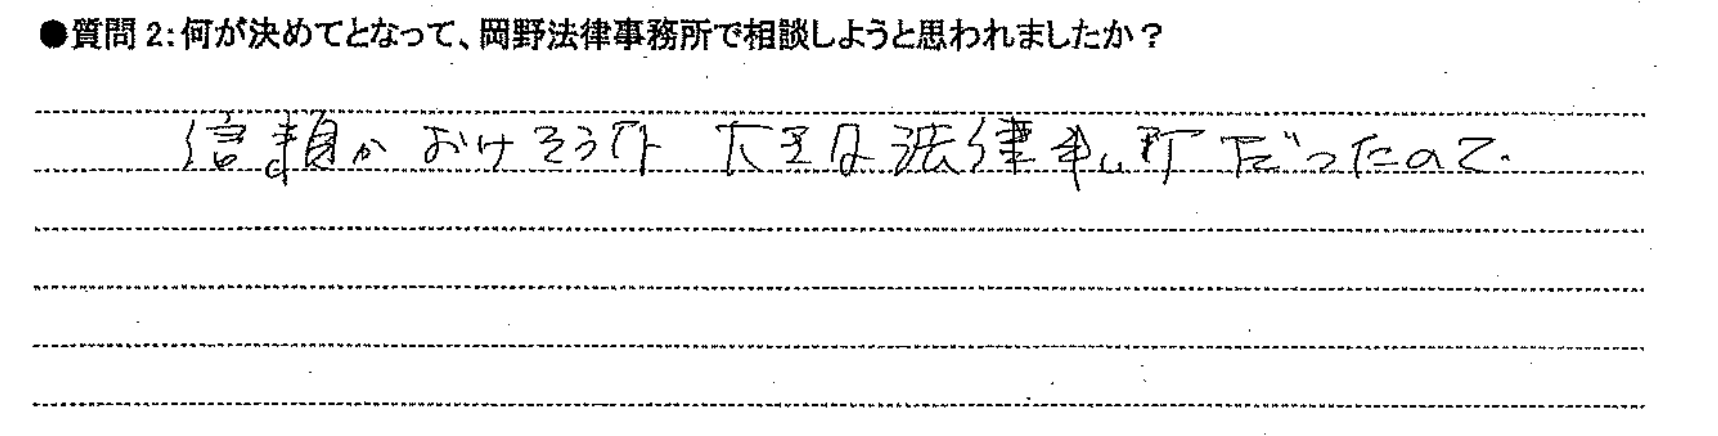 ●質問2:何が決めてとなって、岡野法律事務所で相談しようと思われましたか？
信頼がおけそうで 大きな法律事ム所だったので.